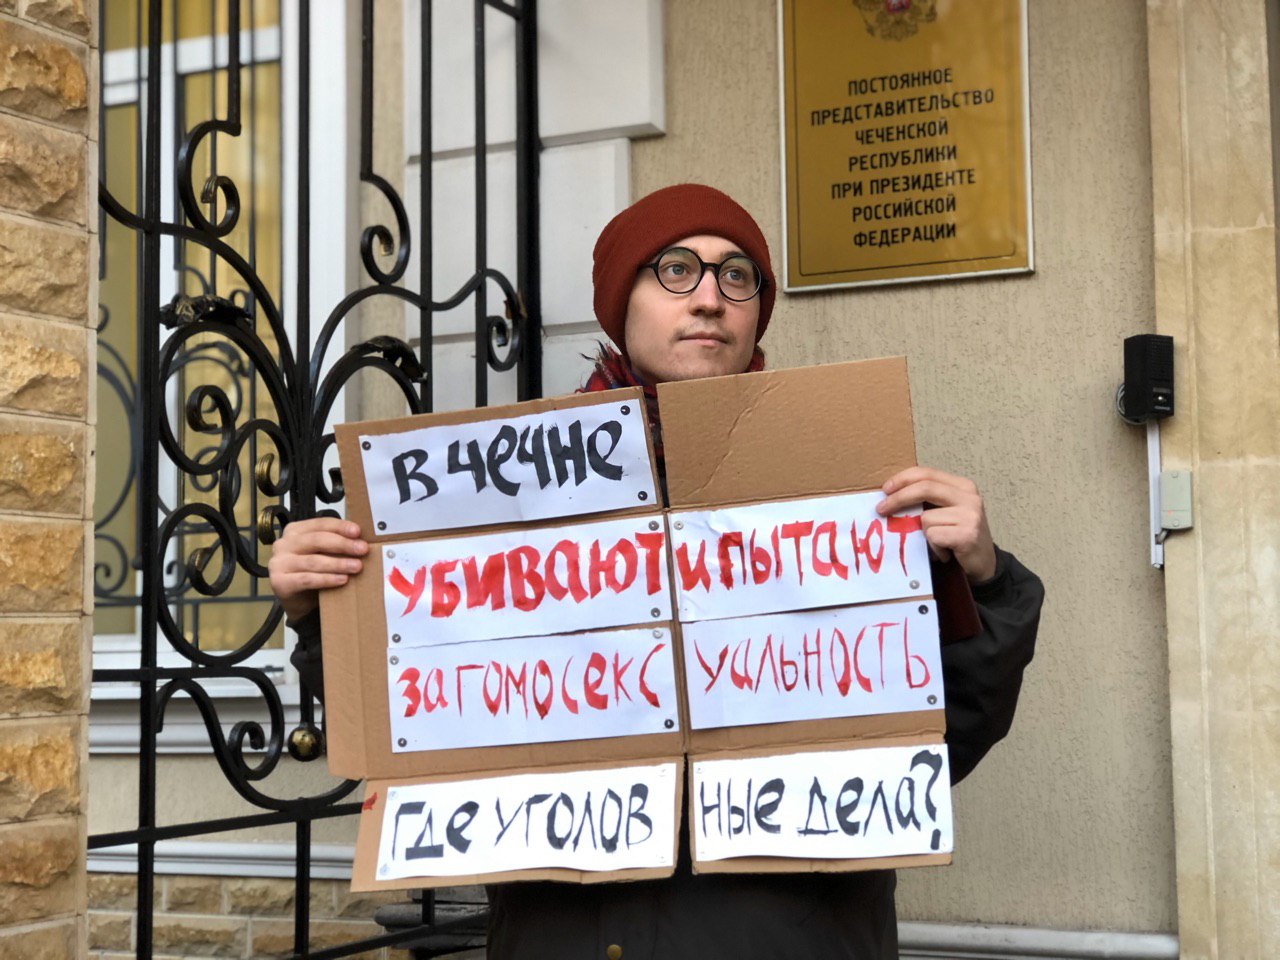 ПОСТОЯННОЕ
ПРЕДСТАВИТЕЛЬСТВО
ЧЕЧЕНСКОЙ
РЕСПУБЛИКИ
ПРИ ПРЕЗИДЕНТЕ
РОССИЙСКОЙ
ФЕДЕРАЦИИ
В ЧЕЧНЕ
УБИВАЮТ И ПЫТАЮТ
ЗА ГОМОСЕКСУАЛЬНОСТЬ
ГДЕ УГОЛОВНЫЕ ДЕЛА?